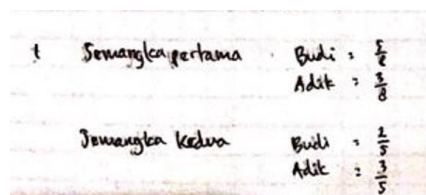 Semangka pertama Budi = 5/8
Adik = 3/8
Semangka kedua Budi = 2/5
Adik = 3/5